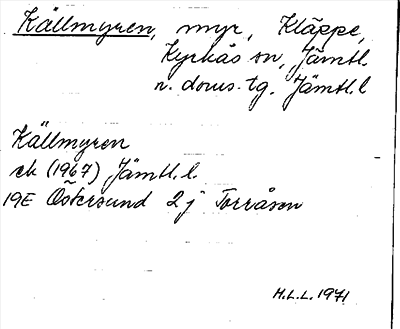 Källmyren, myr, Kläppe,
Kyrkås sn, Jämtl.
n. doms.tg. Jämtl.l
Källmyren
ek (1967) Jämtl.l.
19E Östersund 2j Torråsen
H.L.L. 1971